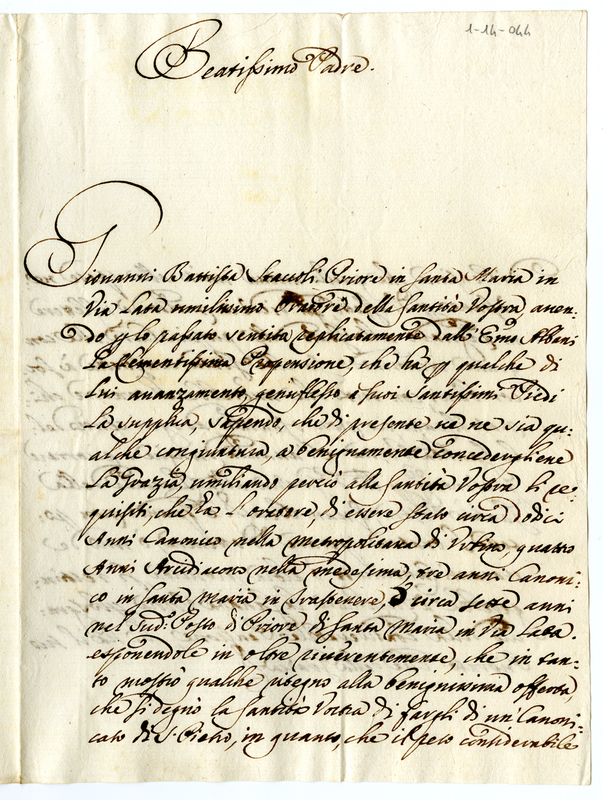 1-14-044
Beatissimo Padre.
Giovanni Battista Staccoli Priore in Santa Maria in
Via Lata umilissimo Oratore della Santità Vostra, aven:
do p lo passato sentita replicatamente dall' Emo Albani
La Clementissima Propensione, che ha p qualche di
Lui avanzamento, genuflesso a suoi Santissimi Piedi
La supplica, sapendo, che di presente ve ne sia qu:
alche congiuntura, a benignamente concedergliene
La Grazia, umiliando perciò alla Santità Vostra li re:
quisiti, che ha L'oratore, di essere stato circa dodici
Anni Canonico nella metropolitana di Urbino, quattro
Anni Arcidiacono nella medesima, tre anni Canoni:
co in Santa Maria in Trastevere, e circa sette anni
nel Sud.o Posto di Priore di Santa Maria in Via Lata.
esponendole in oltre riverentemente, che in tan:
to mostrò qualche ritegno alla benignissima offerta,
che si degnò la Santità Vostra di fargli di un Canoni:
cato di S. Pietro, in quanto, che il peso considerabile